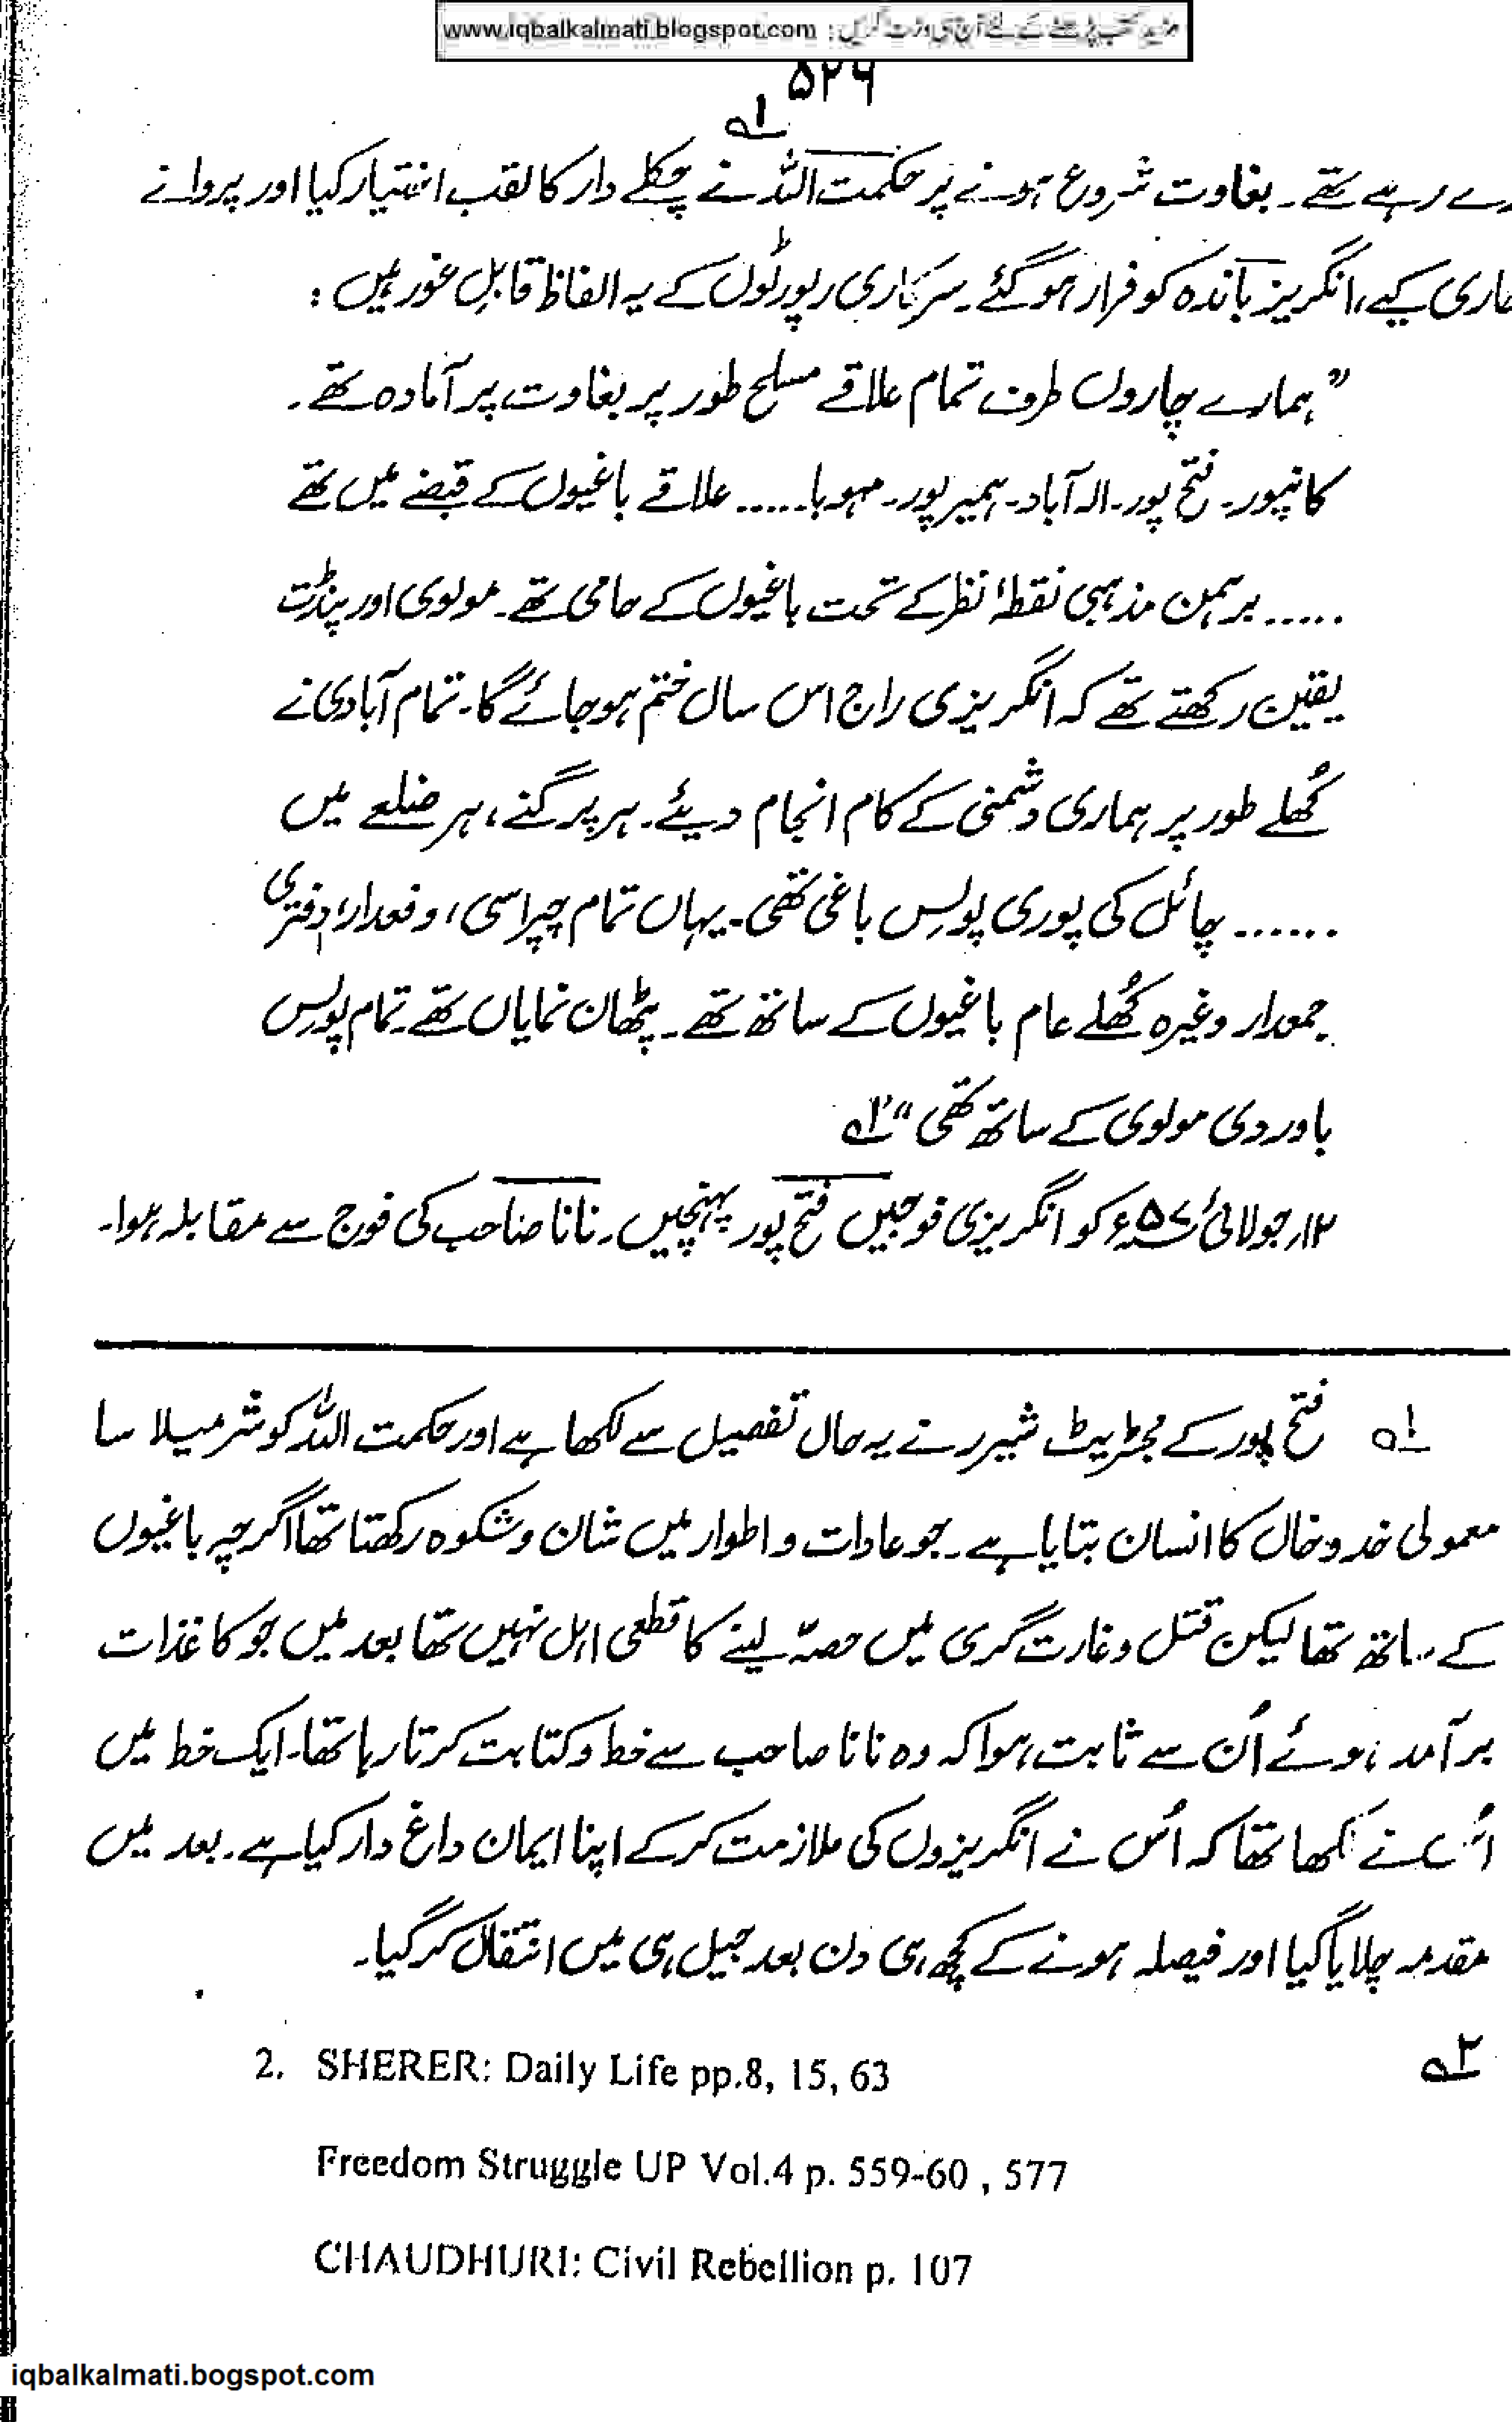 www.iqbalkalmati.blogspot.com : مزید کتب پڑھنے کے لئے آج ہی وزٹ کریں
۵۲۶
رے رہے تھے۔ بغاوت شروع ہونے پر حکمت اللہ نے چکلے دار کا لقب اختیار کیا اور پروانے ؎۱
جاری کیے، انگریز باندہ کو فرار ہو گئے۔ سرکاری رپورٹوں کے یہ الفاظ قابلِ غور ہیں :
”ہمارے چاروں طرف تمام علاقے مسلح طور پر بغاوت پر آمادہ تھے۔
کانپور۔ فتح پور۔ الہ آباد۔ ہمیر پور۔ مہوبا..... علاقے باغیوں کے قبضے میں تھے
..... برہمن مذہبی نقطۂ نظر کے تحت باغیوں کے حامی تھے۔ مولوی اور پنڈت
یقین رکھتے تھے کہ انگریزی راج اس سال ختم ہو جائے گا۔ تمام آبادی نے
کُھلے طور پر ہماری دشمنی کے کام انجام دیئے۔ ہر پرگنے، ہر ضلعے میں
...... چائل کی پوری پولِس باغی تھی۔ یہاں تمام چپراسی، دفعدار، دفتری
جمعدار وغیرہ کُھلے عام باغیوں کے ساتھ تھے۔ پٹھان نمایاں تھے۔ تمام پولِس
باوردی مولوی کے ساتھ تھی“ ؎۲
۱۲ر جولائی ۵۷ء کو انگریزی فوجیں فتح پور پہنچیں۔ نانا صاحب کی فوج سے مقابلہ ہوا۔
؎۱ فتح پور کے مجٹریٹ شیرر نے یہ حال تفصیل سے لکھا ہے اور حکمت اللہ کو شرمیلا سا
معمولی خد و خال کا انسان بتایا ہے۔ جو عادات و اطوار میں شان و شکوہ رکھتا تھا اگرچہ باغیوں
کے ساتھ تھا لیکن قتل و غارت گری میں حصہّ لینے کا قطعی اہل نہیں تھا بعد میں جو کاغذات
برآمد ہوئے اُن سے ثابت ہوا کہ وہ نانا صاحب سے خط و کتابت کرتا رہا تھا۔ ایک خط میں
اُس نے لکھا تھا کہ اُس نے انگریزوں کی ملازمت کر کے اپنا ایمان داغ دار کیا ہے۔ بعد میں
مقدمہ چلایا گیا اور فیصلہ ہونے کے کچھ ہی دن بعد جیل ہی میں انتقال کر گیا۔
؎۲ 2. SHERER: Daily Life pp.8, 15, 63
Freedom Struggle UP Vol.4 p. 559-60 , 577
CHAUDHURI: Civil Rebellion p. 107
iqbalkalmati.bogspot.com